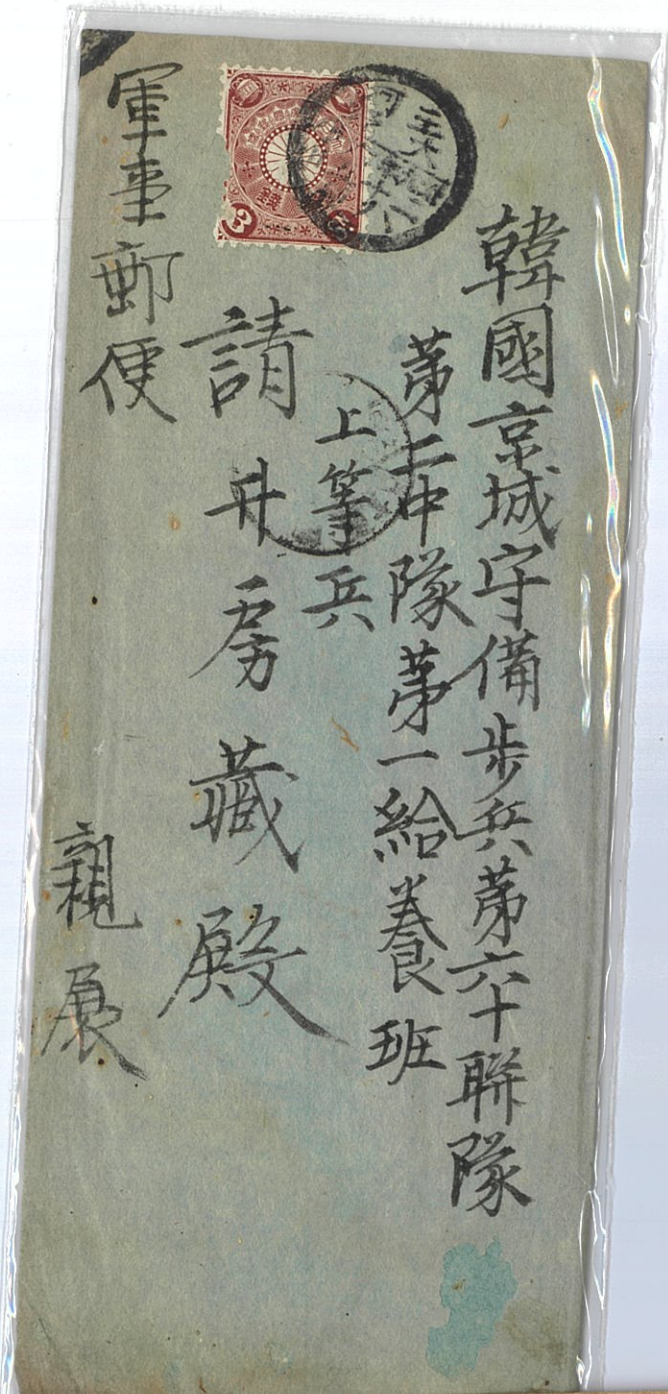 韓國京城守備步兵第六十聯隊
第二中隊第一給養班
上等兵
請井房藏殿
軍事郵便
親展
3